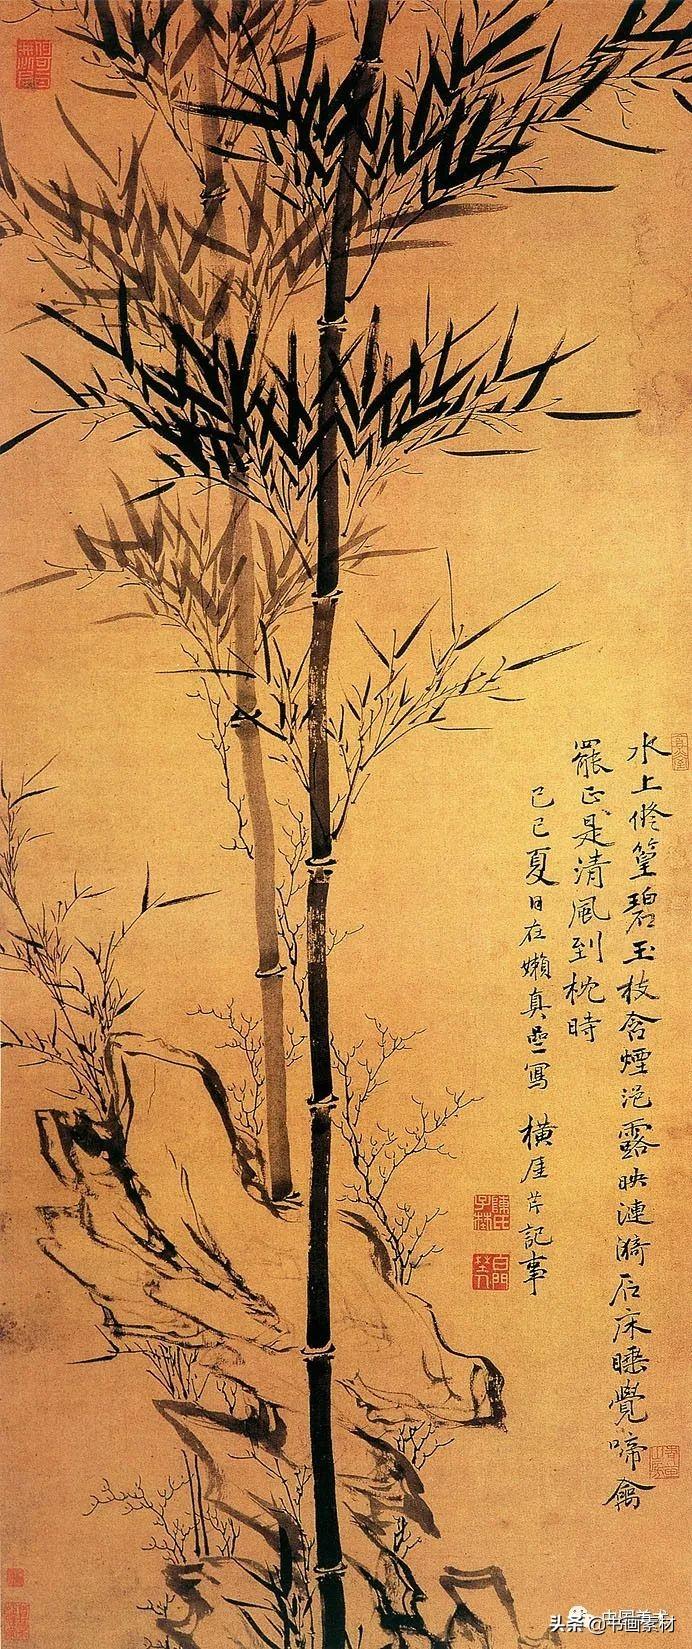 水上脩篁碧玉枝含煙浥露映漣漪石床睡覺啼禽
罷正是清風到枕時
己巳夏日在嬾真寫 橫厓芹記事
陳氏子野
中国美术
头条@书画素材